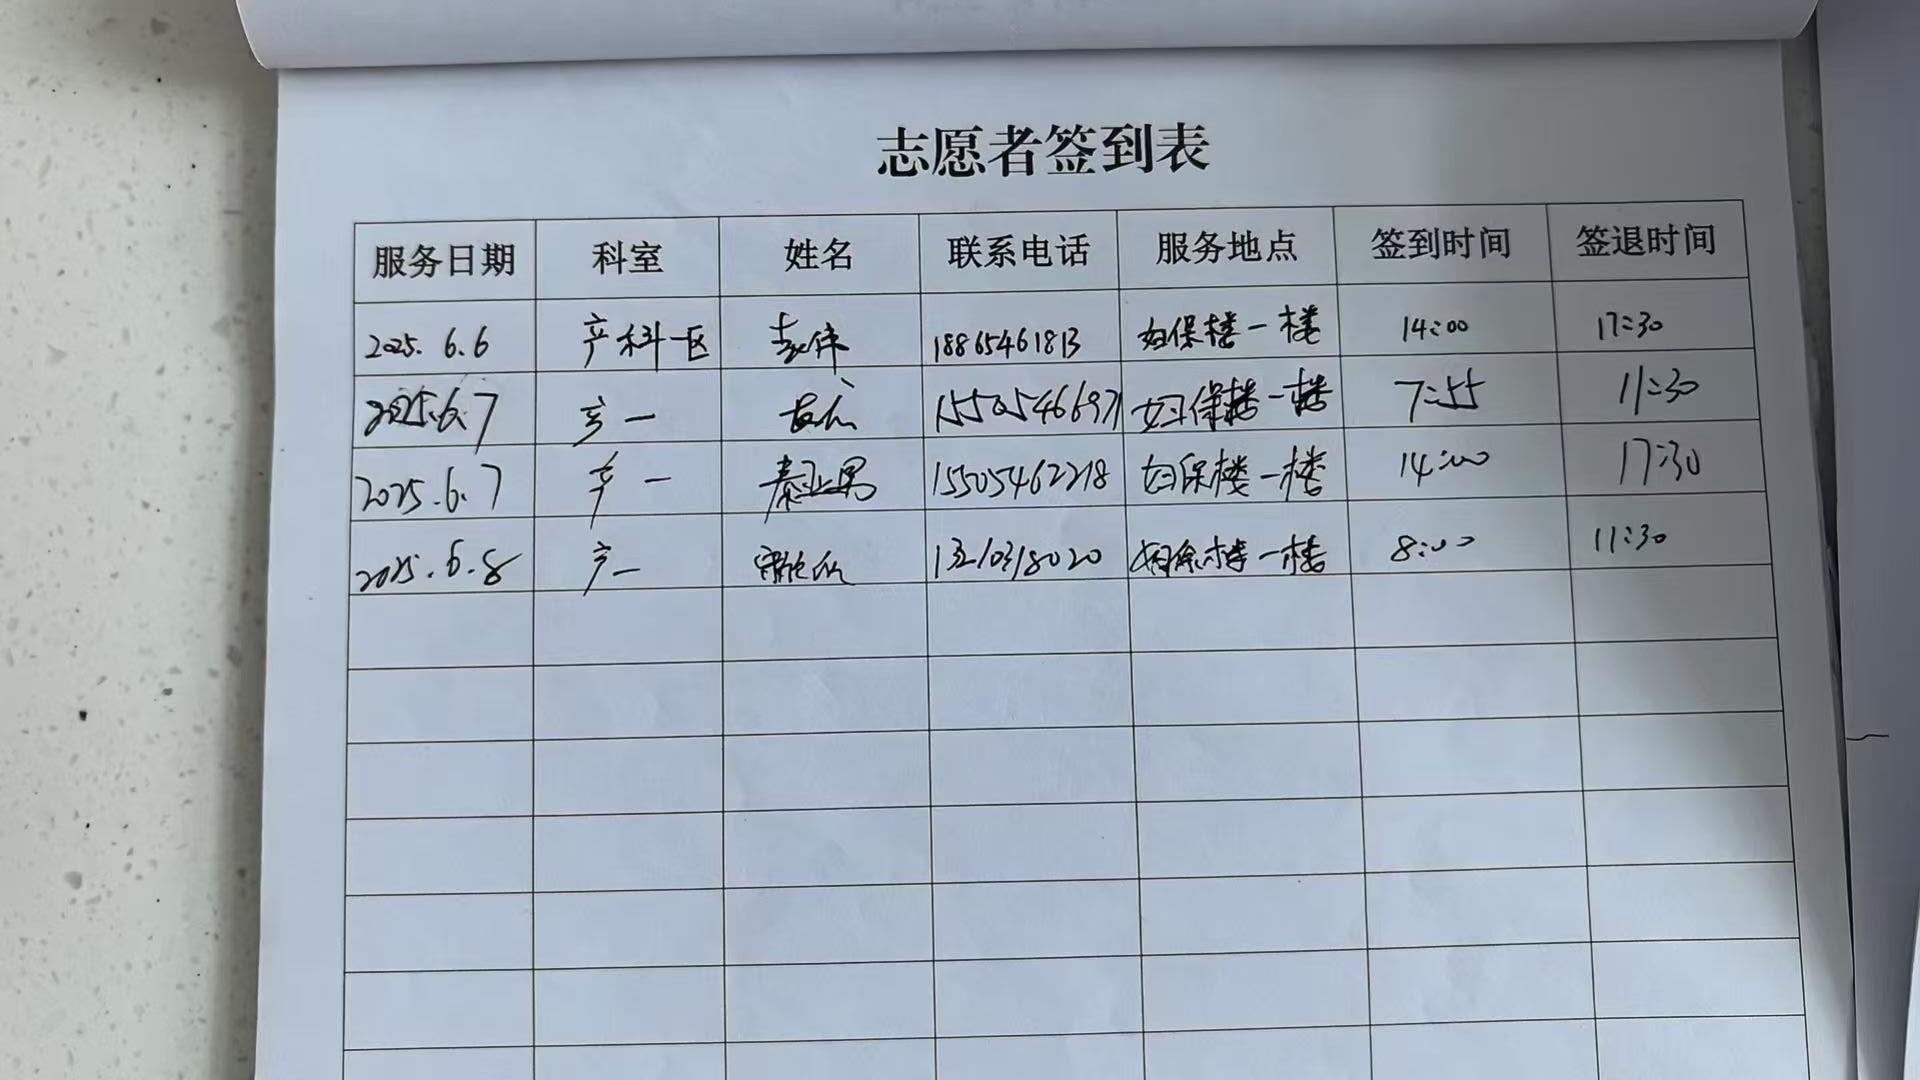 志愿者签到表
服务日期 科室 姓名 联系电话 服务地点 签到时间 签退时间
2025.6.6 产科一区 18865461813 妇保楼一楼 14:00 17:30
2025.6.7 产一 妇保楼一楼 7:55 11:30
2025.6.7 产一 秦亚男 15505462218 妇保楼一楼 14:00 17:30
2025.6.8 产一 妇保楼一楼 8:00 11:30